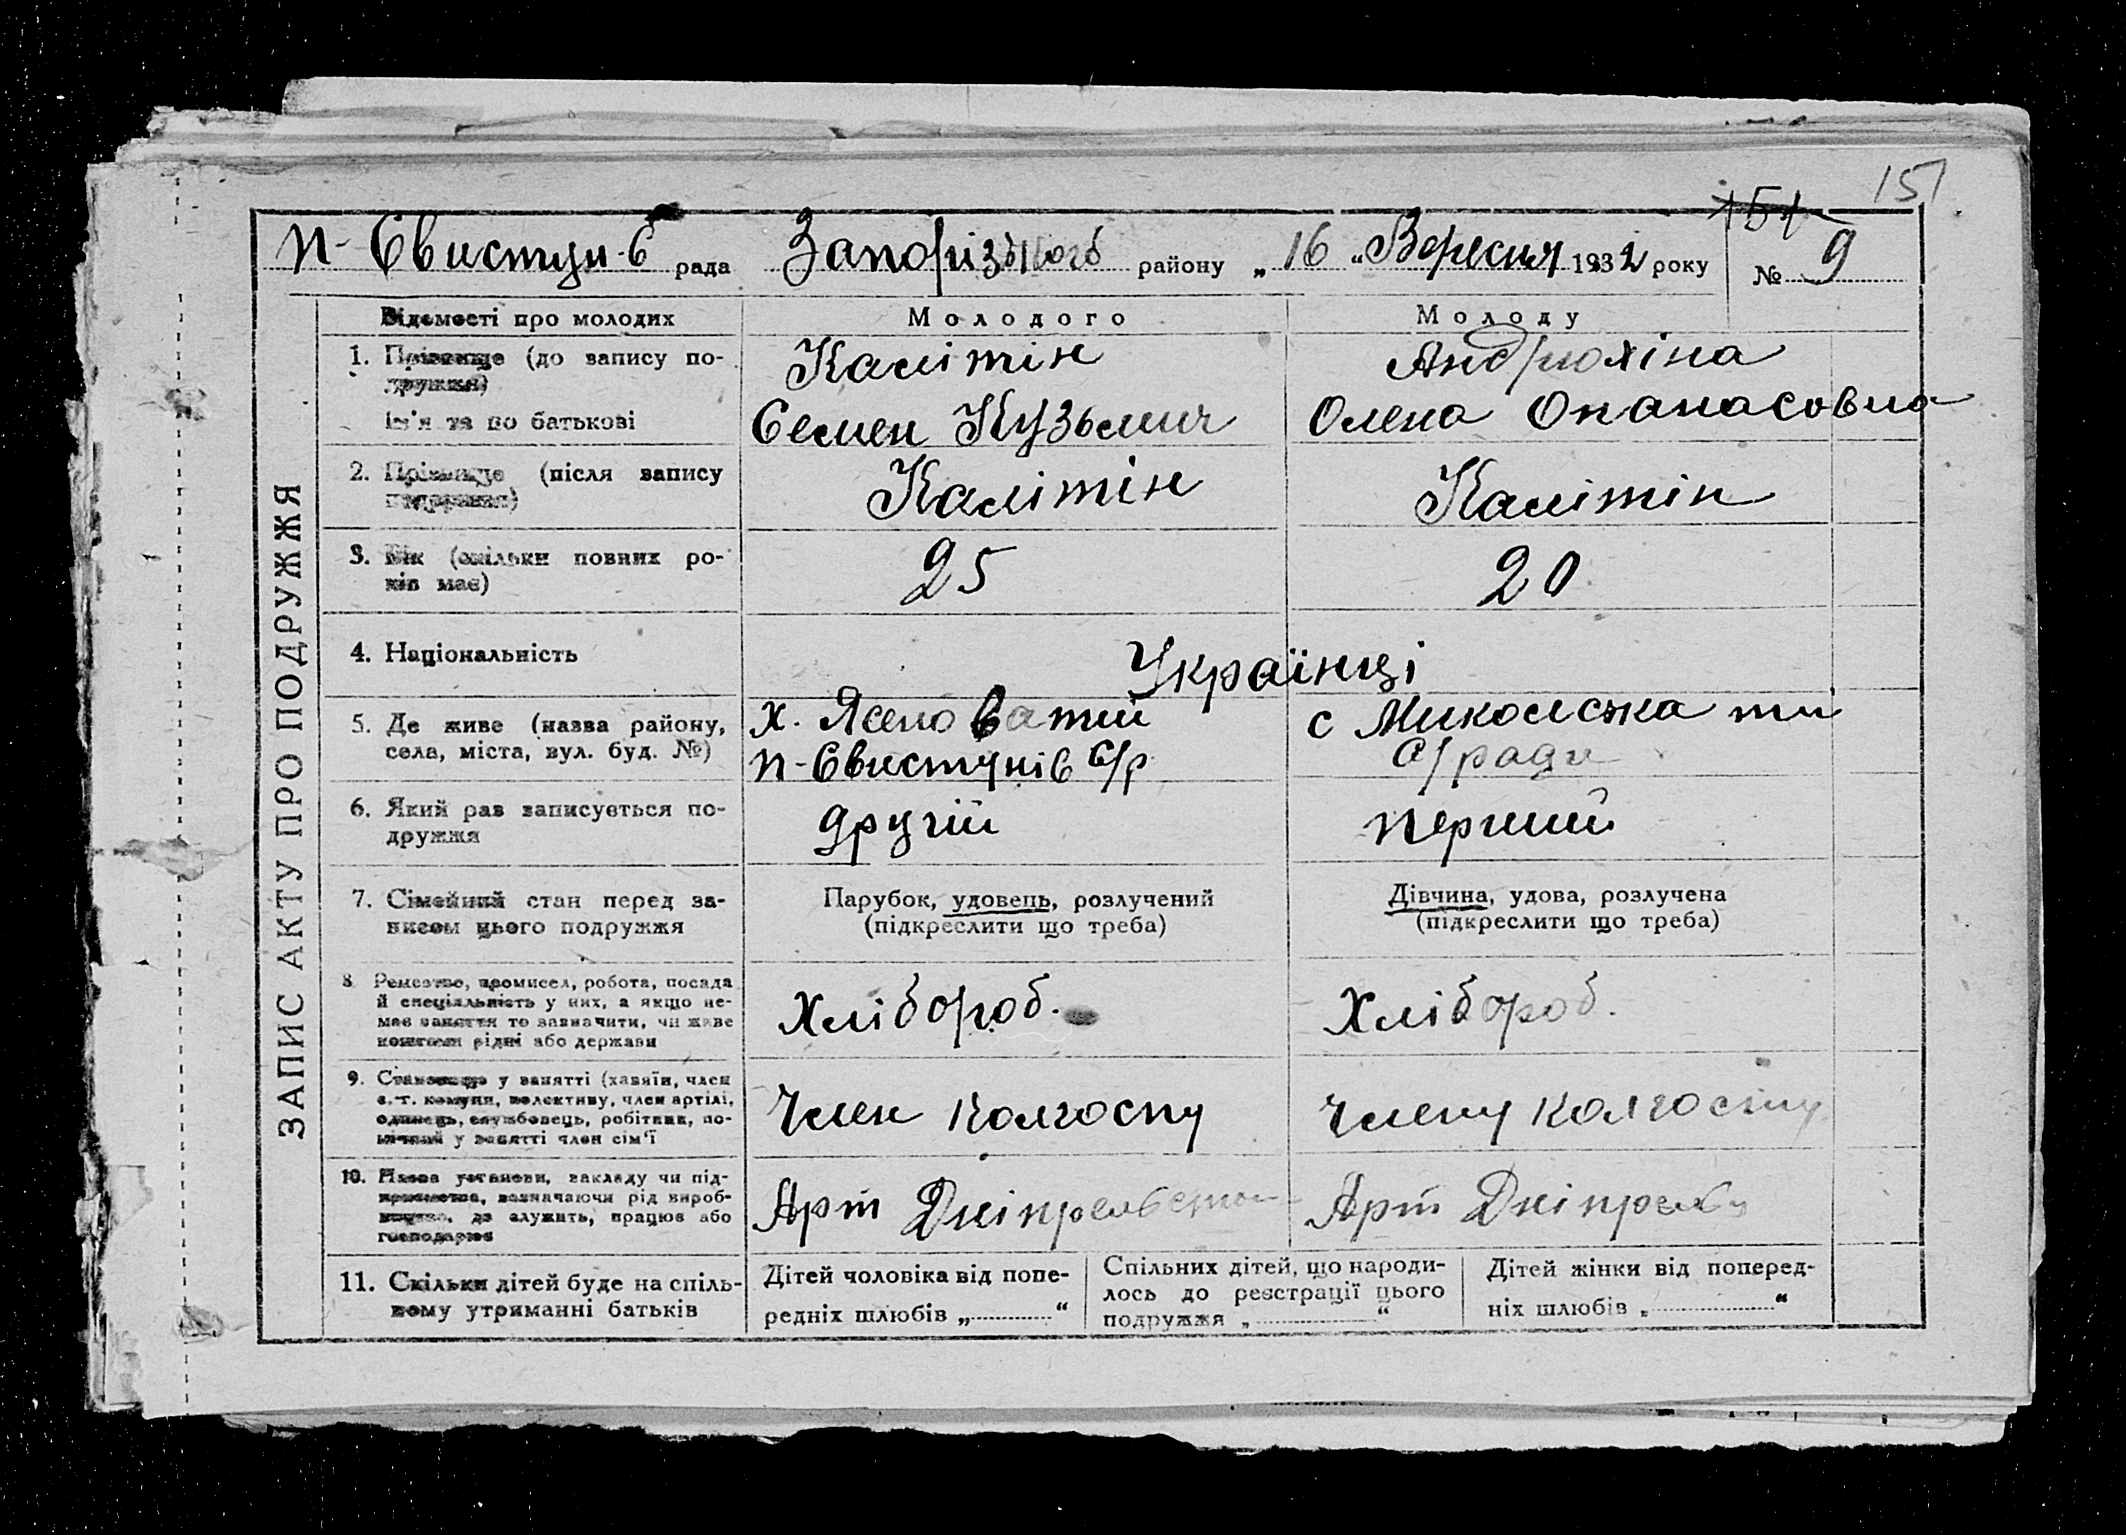 151
151
П-Свистун-в рада Запорізького району „16 “ Вересня 1932 року № 9
ЗАПИС АКТУ ПРО ПОДРУЖЖЯ
Відомості про молодих Молодого Молоду
1. Прізвище (до запису по- Калітін Андрюхіна
дружжя)
Ім'я та по батькові Семен Кузьмич Олена Опанасовна
2. Прізвище (після запису Калітін Калітін
подружжя)
3. Вік (скільки повних ро- 25 20
ків має)
4. Національність Українці
5. Де живе (назва району, х. Ясеноватий с Миколська ти
села, міста, вул. буд. №) П-Свистунів с/р с/ради
6. Який раз записується по- другий перший
дружжя
7. Сімейний стан перед за- Парубок, удовець, розлучений Дівчина, удова, розлучена
писом цього подружжя (підкреслити що треба) (підкреслити що треба)
8. Ремество, промисел, робота, посада
й спеціяльність у них, а якщо не- Хлібороб. Хлібороб.
має заняття то зазначити, чи живе
коштом рідні або держави
9. Становище у занятті (хазяїн, член
с.-г. комуни, колективу, член артілі, Член колгоспу члену колгоспу
одинець, службовець, робітник, по-
мічний у занятті член сім'ї
10. Назва установи, закладу чи під-
приємства, зазначаючи рід вироб- Арт Арт
ництва, де служить, працює або
господарює
11. Скільки дітей буде на спіль-
ному утриманні батьків
Дітей чоловіка від попе-
редніх шлюбів „ “
Спільних дітей, що народи-
лось до реєстрації цього
подружжя „ “
Дітей жінки від поперед-
ніх шлюбів „ “